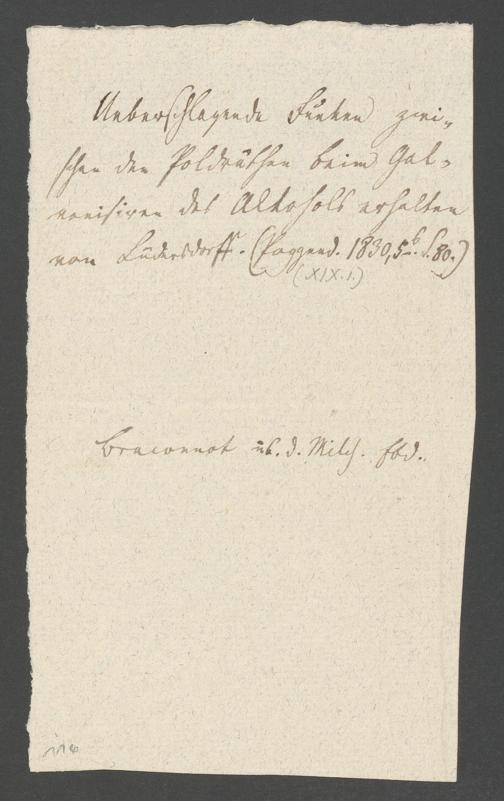 Ueberschlagende Funken zwi-
schen den Poldräthen beim Gal-
vanisiren des Alkohols erhalten
von Lüdersdorff. (Poggend. 1830, 5. S. 80.)
(XIX.1.)
Braconnot üb. d. Milch. Ebd.